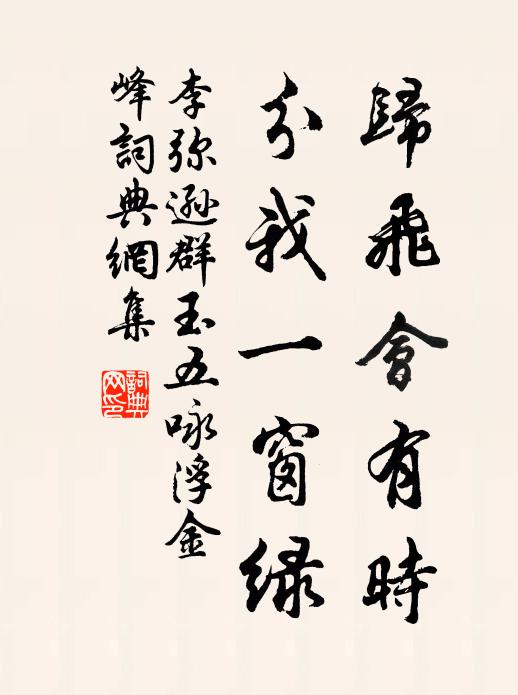 歸飛會有時
分我一窗緑
李弥遜群玉五咏浮金
峰詞典網集
詞典
网印